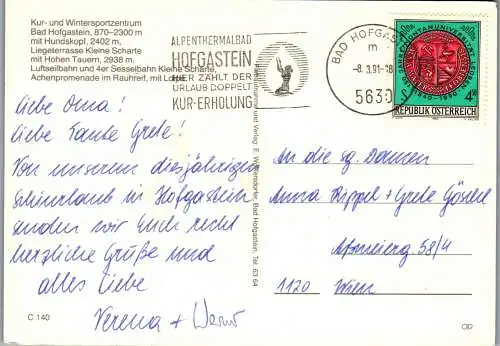 Kur- und Wintersportzentrum
Bad Hofgastein, 870–2300 m
mit Hundskopf, 2402 m,
Liegeterrasse Kleine Scharte
mit Hohen Tauern, 2938 m,
Luftseilbahn und 4er Sesselbahn Kleine Scharte,
Achenpromenade im Rauhreif, mit
ALPENTHERMALBAD
HOFGASTEIN
HIER ZÄHLT DER
URLAUB DOPPELT
KUR-ERHOLUNG
BAD HOFGAS
m
-8.3.91-18
5630
REPUBLIK ÖSTERREICH
Liebe Oma!
Liebe Tante Grete!
Von unserem diesjährigen
Schiurlaub in Hofgastein
senden wir Euch recht
herzliche Grüße und
alles Liebe
Verena +
An die sg. Damen
Anna Rippel + Grete
58/4
1120 Wien
und Verlag E. Bad Hofgastein, Tel. 63 64
C 140